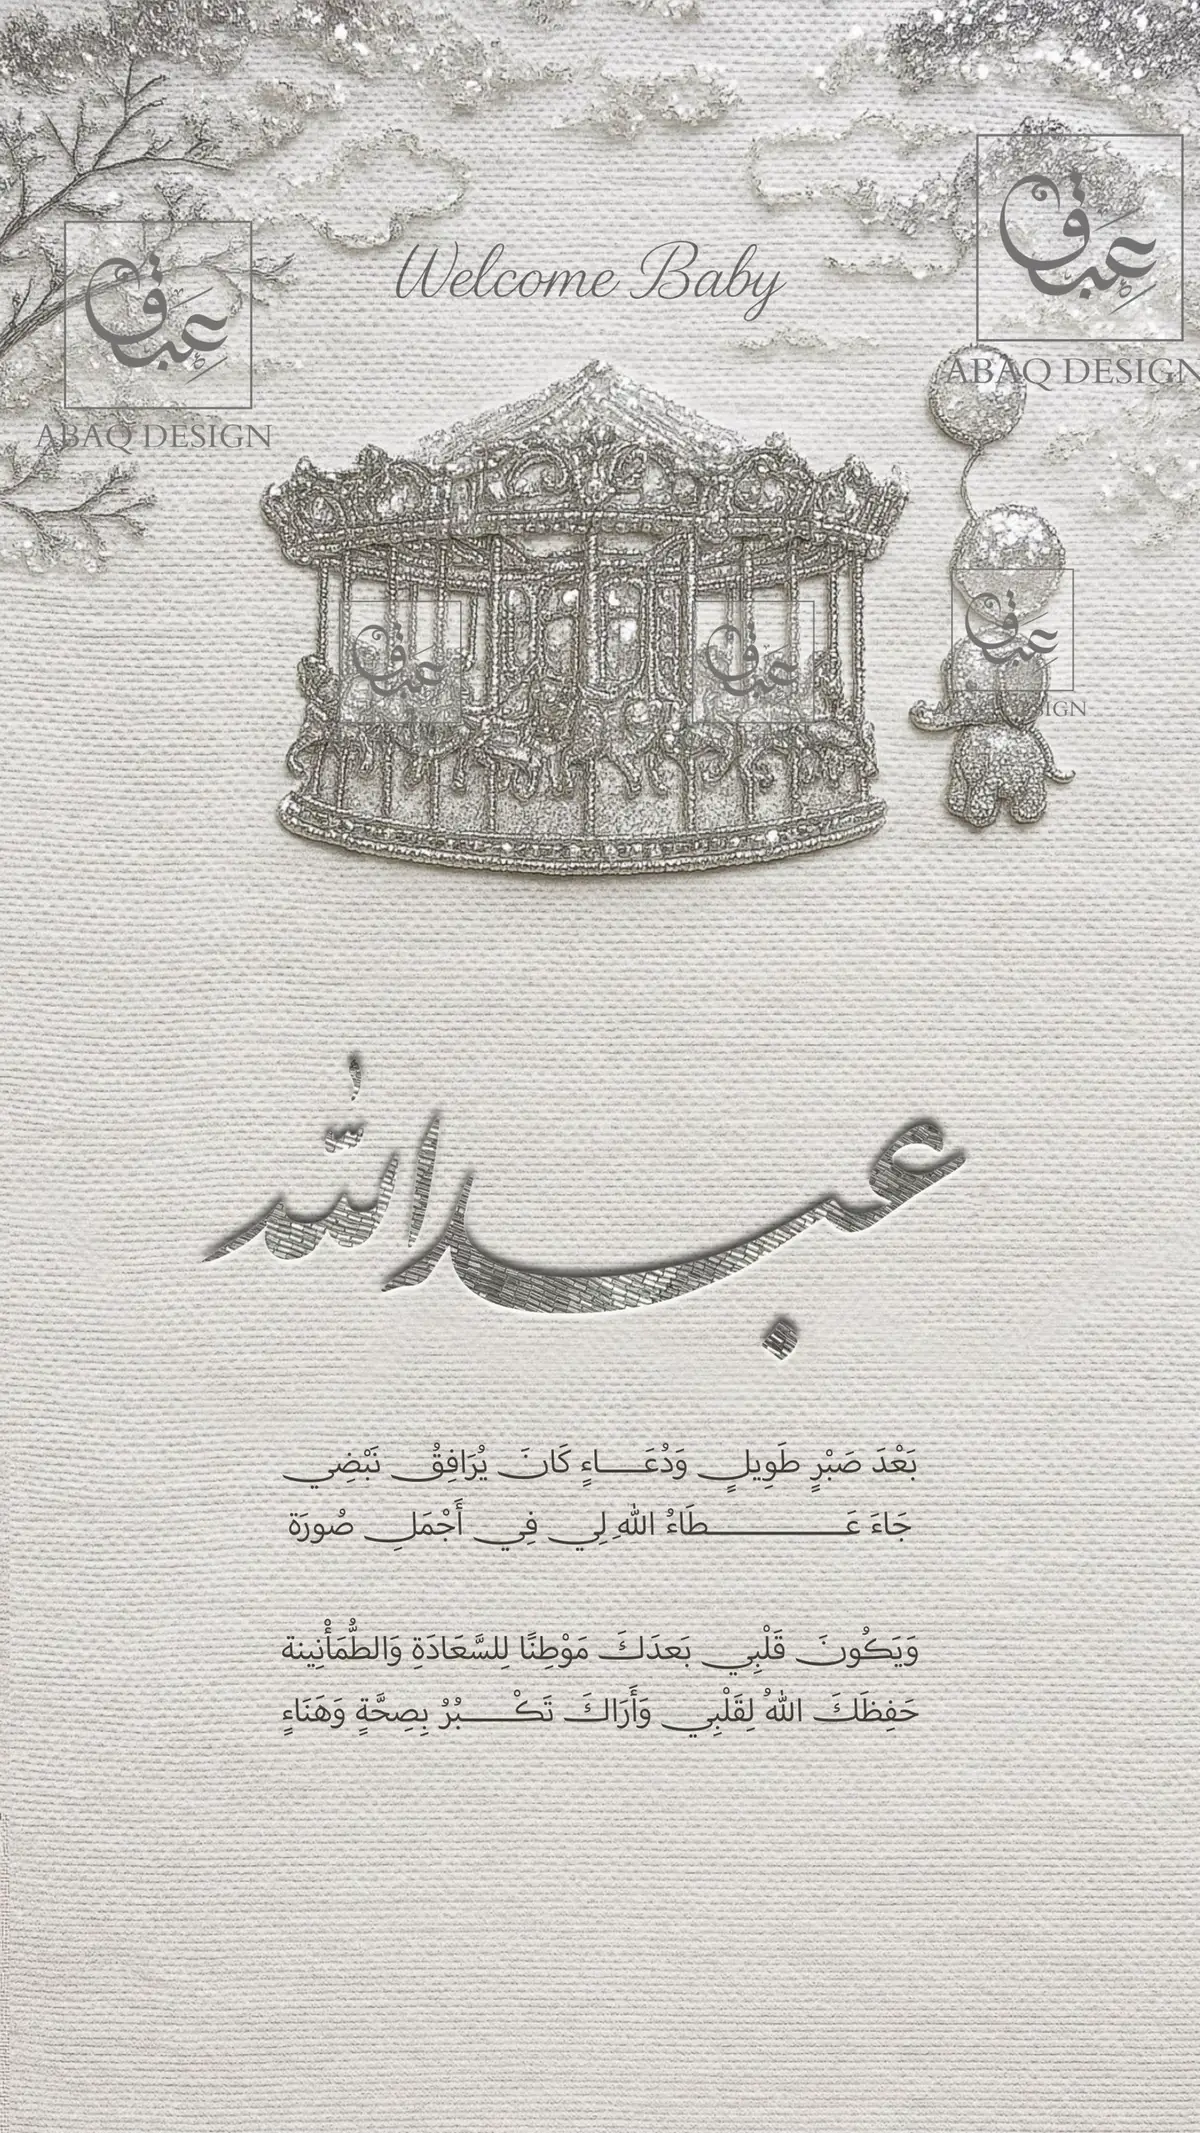 عباق
ABAQ DESIGN
Welcome Baby
عباق
ABAQ DESIGN
عباق
عباق
عباق
DESIGN
عبدالله
بَعْدَ صَبْرٍ طَوِيلٍ وَدُعَـــاءٍ كَانَ يُرَافِقُ نَبْضِي
جَاءَ عَـــــــطَاءُ اللهِ لِي فِي أَجْمَلِ صُورَة
وَيَكُونَ قَلْبِي بَعدَكَ مَوْطِنًا لِلسَّعَادَةِ وَالطُّمَأْنِينة
حَفِظَكَ اللهُ لِقَلْبِي وَأَرَاكَ تَكْـــبُرُ بِصِحَّةٍ وَهَنَاءٍ